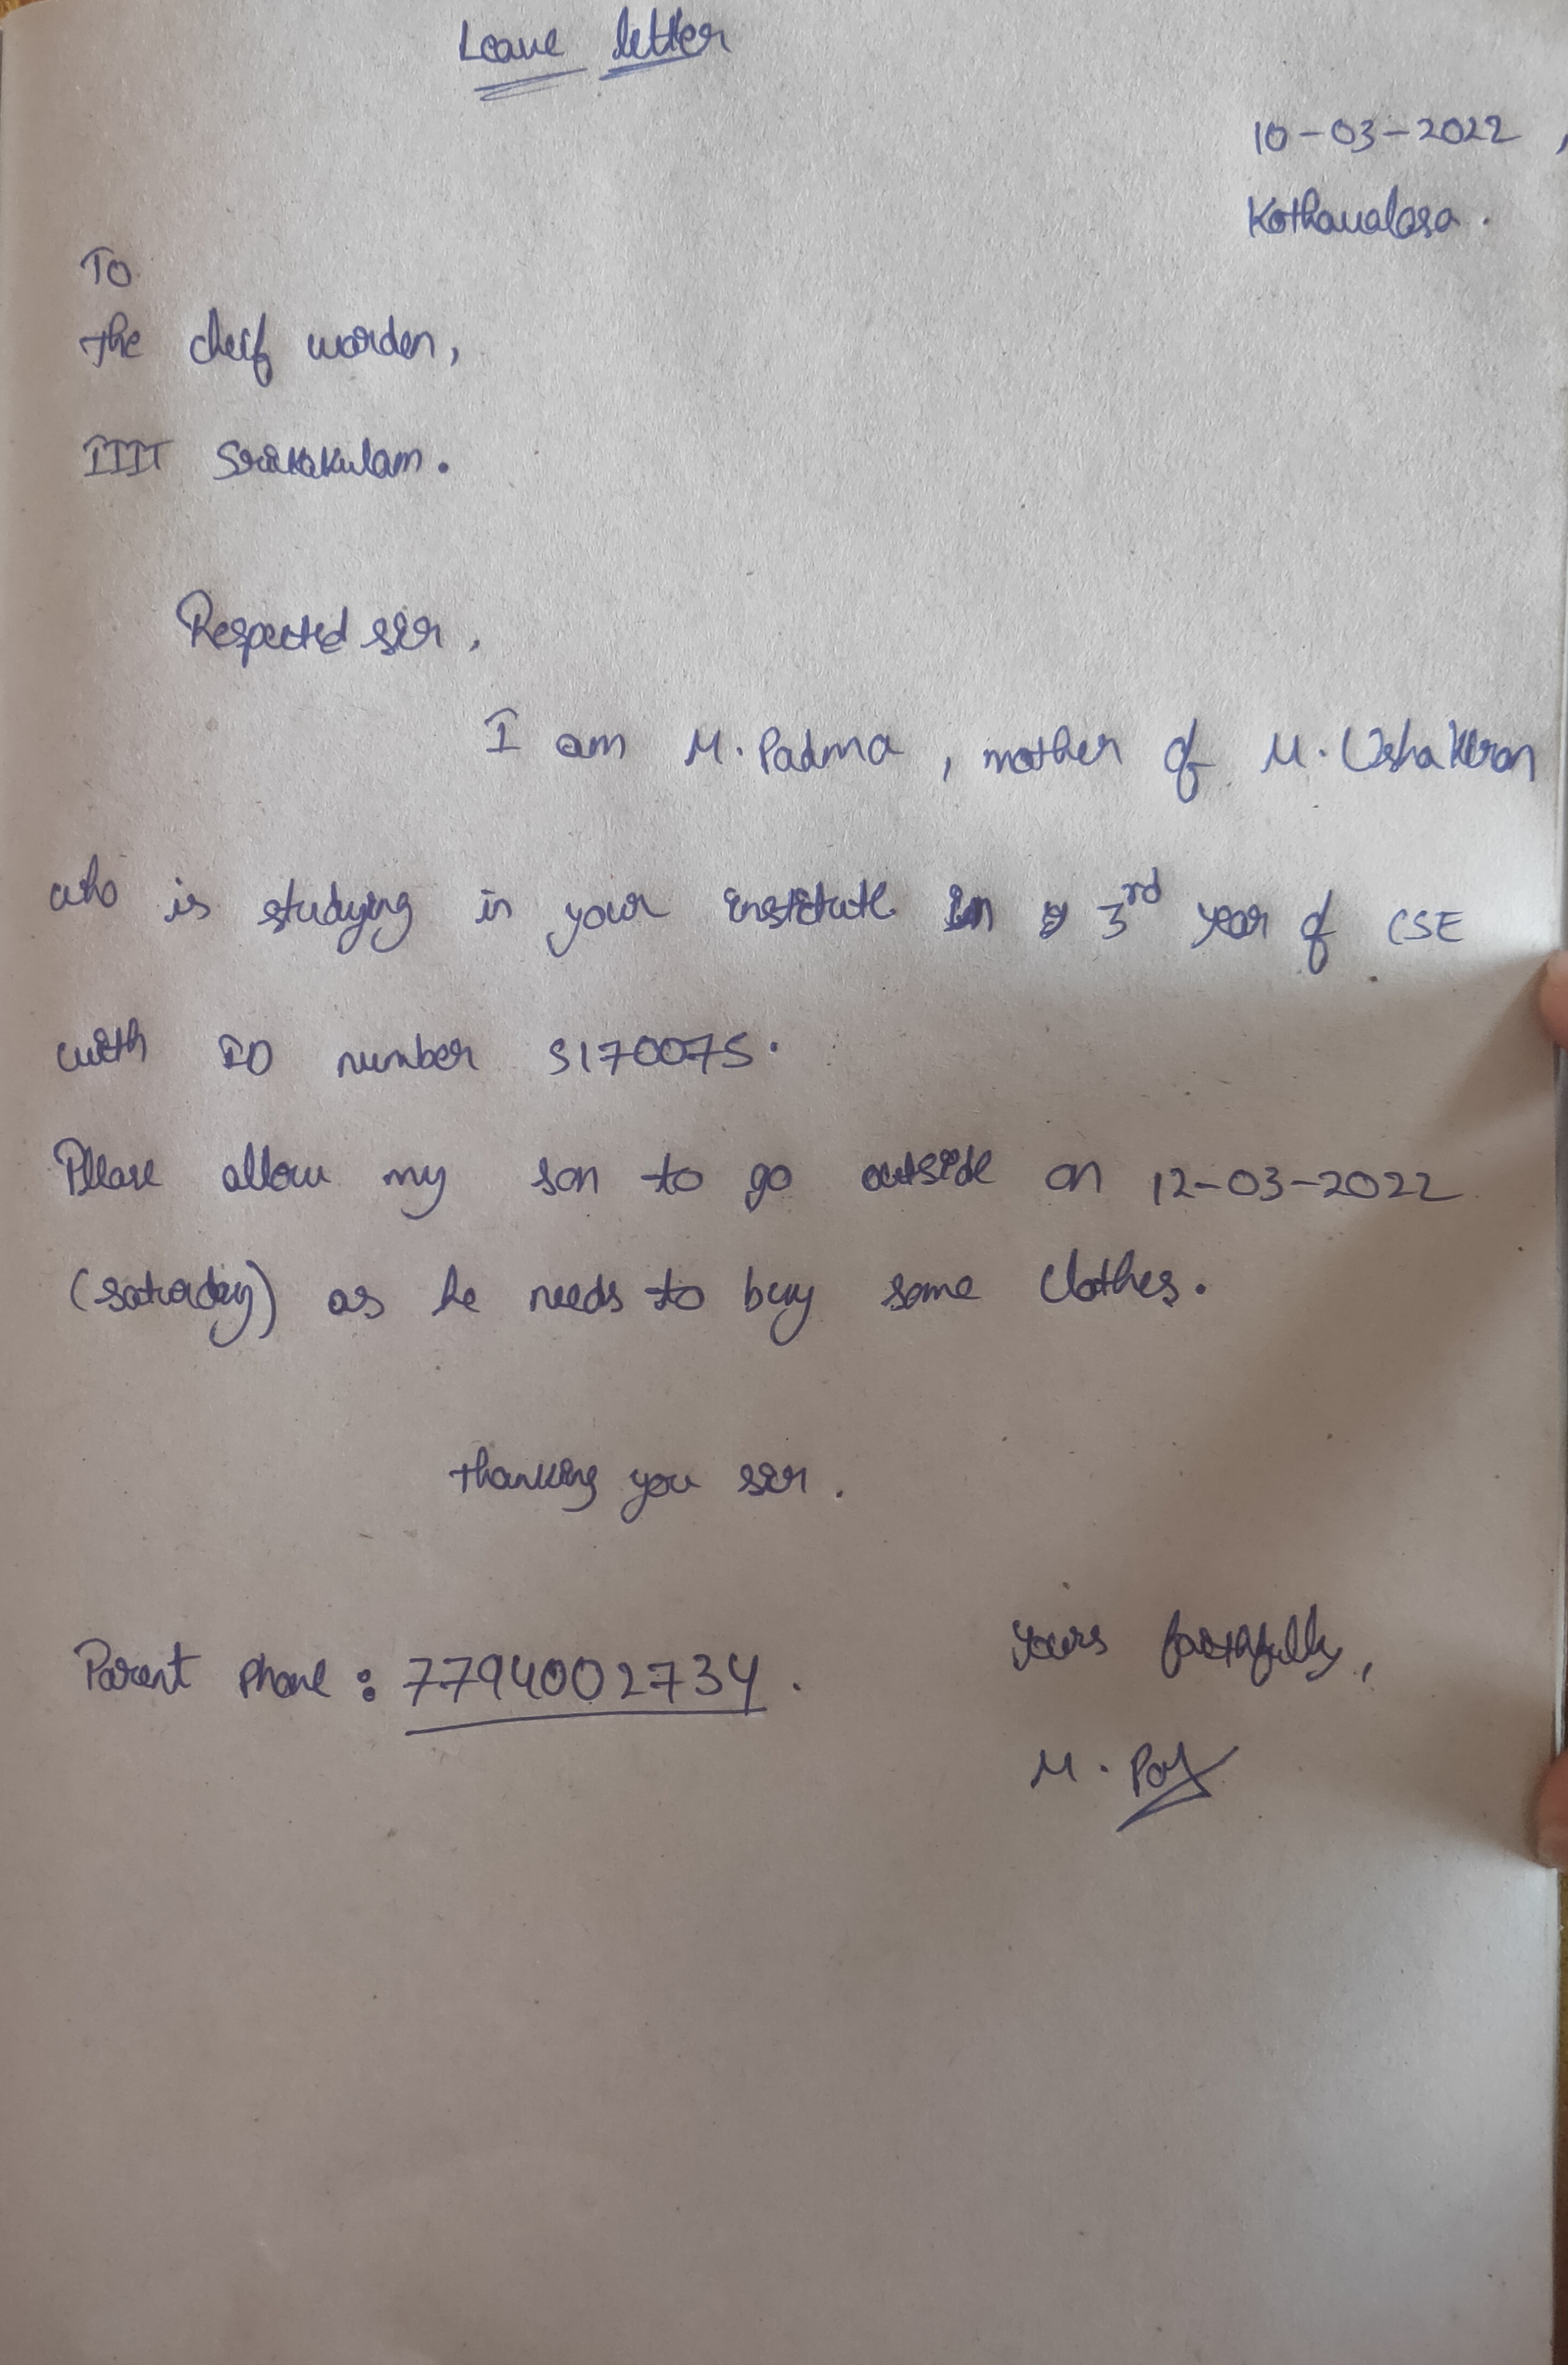 Leave letter
10-03-2022,
Kothavalasa.
To
the cheif warden,
IIIT Srikakulam.
Respected sir,
I am M. Padma, mother of M. UshaKiran
who is studying in your institute in 3rd year of CSE
with ID number S170075.
Please allow my son to go outside on 12-03-2022
(saturday) as he needs to buy some clothes.
thanking you sir.
Yours faithfully,
Parent phone: 7794002734.
M.